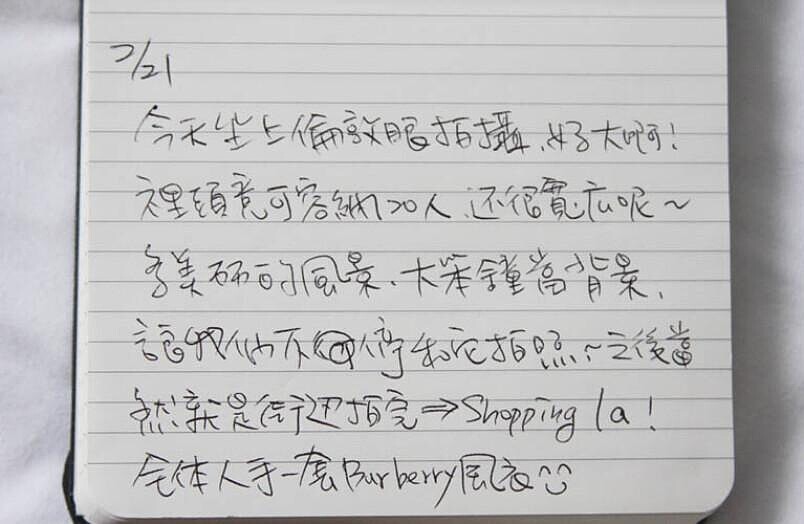 7/21
今天坐上倫敦眼拍攝、好大啊!
裡頭竟可容納20人、还很寬広呢~
多美丽的風景、大笨鐘當背景、
讓我们不停和它拍照~之後當
然就是街边拍完⇒Shopping la!
全体人手一套Burberry風衣